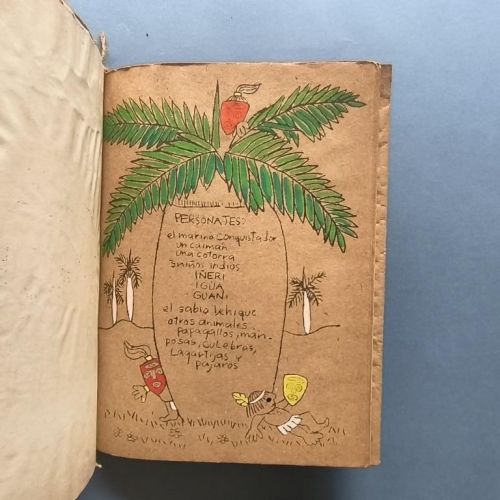 PERSONAJES:
el marino conquistador
un caimán
una cotorra
3 niños indios
IÑERI
IGÜA
GUANI
el sabio behique
otros animales
papagallos, mari-
posas, culebras,
Lagartijas y
pájaros